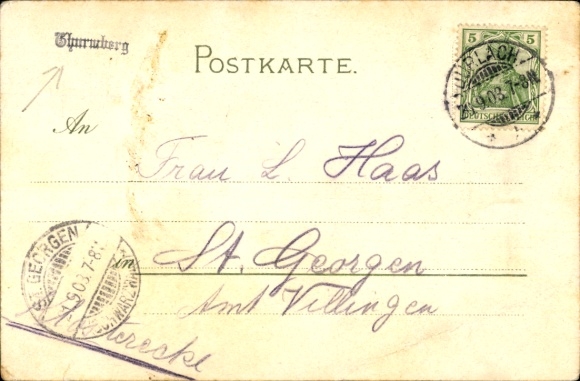 Thurmberg
POSTKARTE.
5 5
DURLACH
.9.03.7-8N
DEUTSCHES REICH
An
Frau L. Haas
in
St. Georgen
Amt Villingen
St. GEORGEN
.9.03.7-8
SCHWARZW